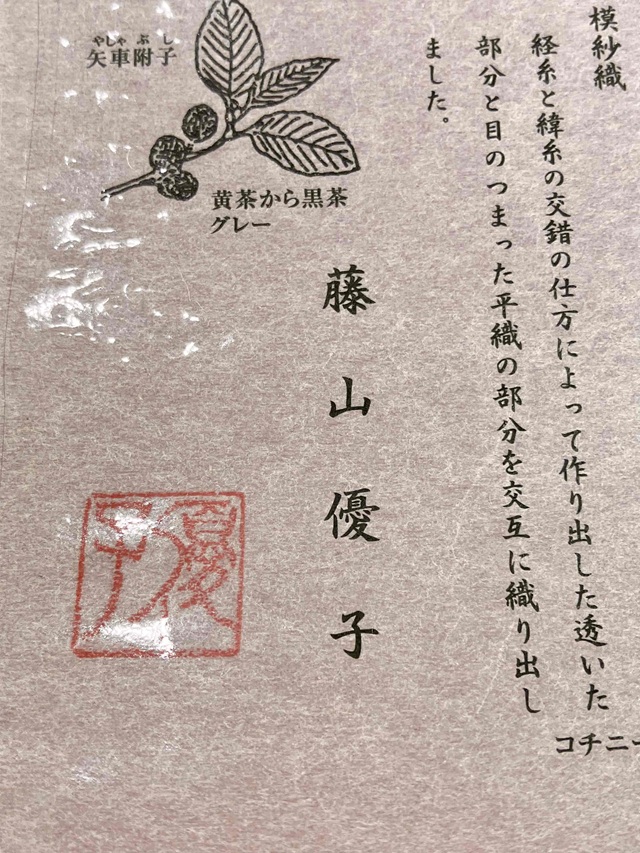 模紗織
経糸と緯糸の交錯の仕方によって作り出した透いた
部分と目のつまった平織の部分を交互に織り出し
ました。
コチニー
やしゃぶし
矢車附子
黄茶から黒茶
グレー
藤山優子
優子